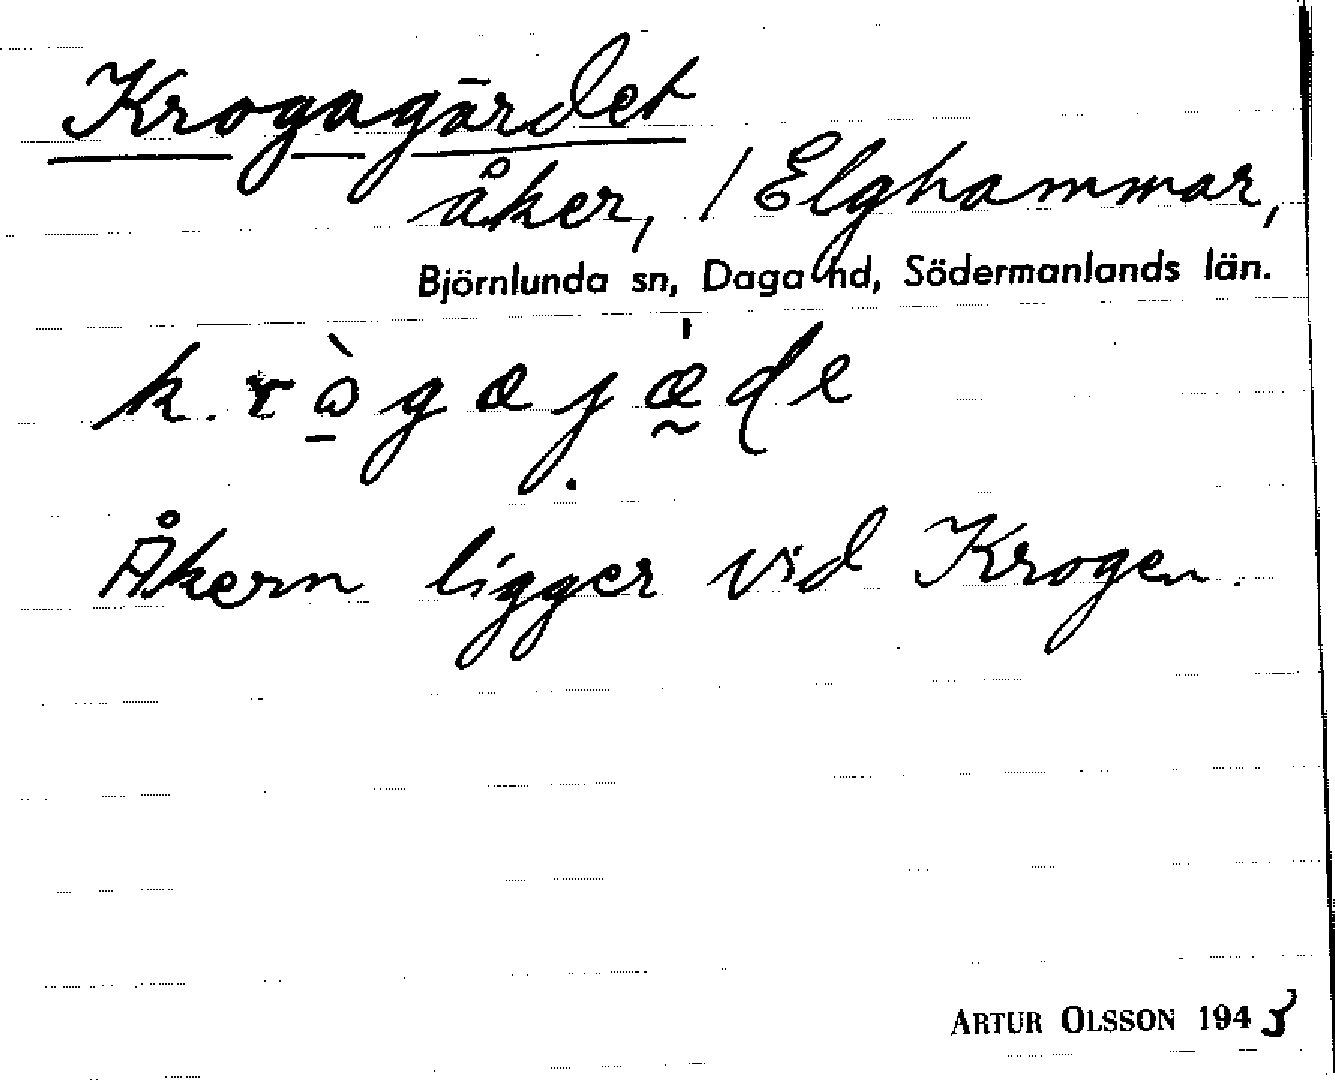 Krogagärdet
åker, / Elghammar,
Björnlunda sn, Daga hd, Södermanlands län.
Åkern ligger vid Krogen.
ARTUR OLSSON 1943